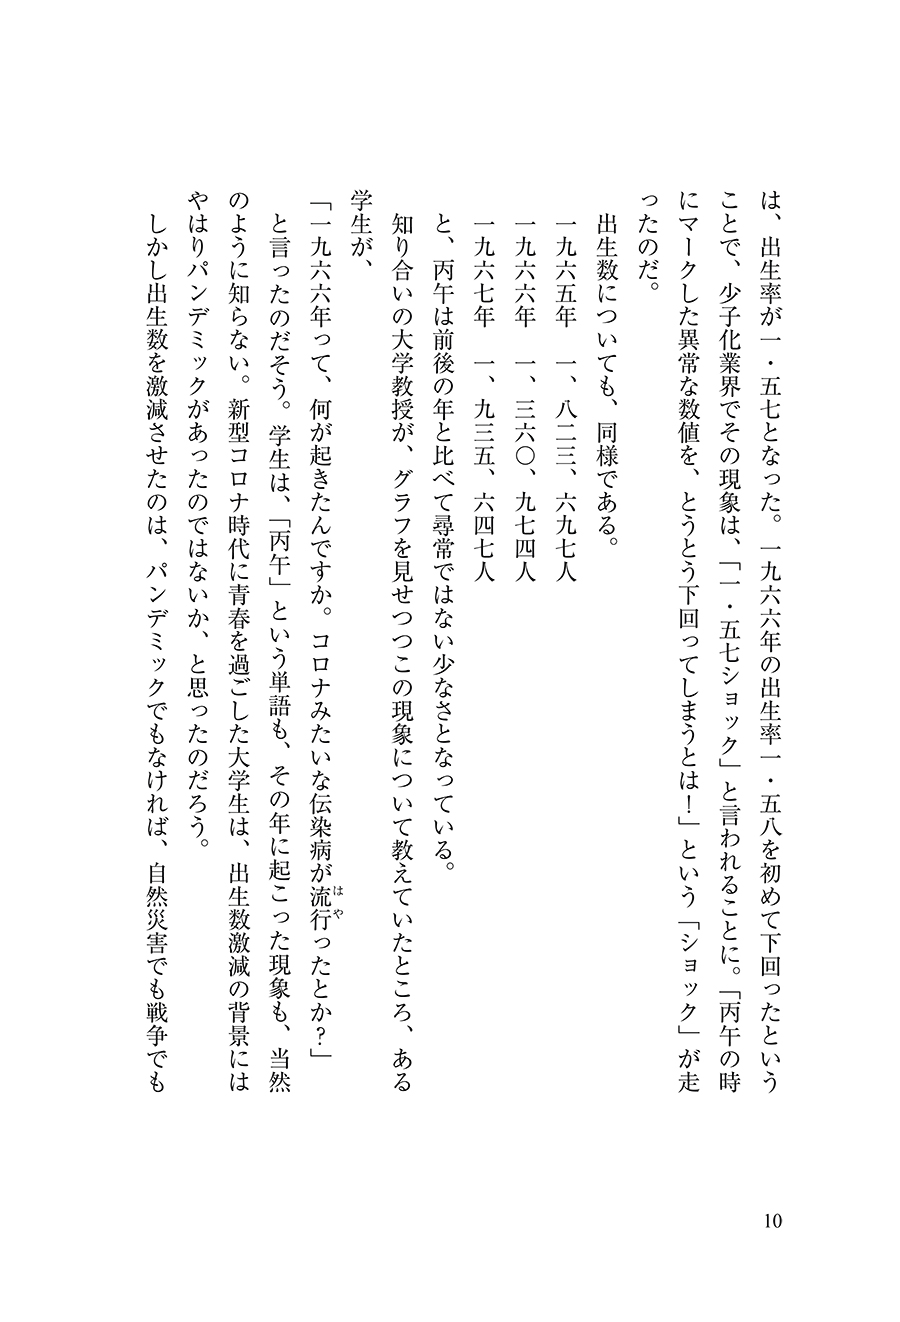 は、出生率が一・五七となった。一九六六年の出生率一・五八を初めて下回ったという
ことで、少子化業界でその現象は、「一・五七ショック」と言われることに。「丙午の時
にマークした異常な数値を、とうとう下回ってしまうとは！」という「ショック」が走
ったのだ。
出生数についても、同様である。
一九六五年　一、八二三、六九七人
一九六六年　一、三六〇、九七四人
一九六七年　一、九三五、六四七人
と、丙午は前後の年と比べて尋常ではない少なさとなっている。
知り合いの大学教授が、グラフを見せつつこの現象について教えていたところ、ある
学生が、
「一九六六年って、何が起きたんですか。コロナみたいな伝染病が流行ったとか？」
はや
と言ったのだそう。学生は、「丙午」という単語も、その年に起こった現象も、当然
のように知らない。新型コロナ時代に青春を過ごした大学生は、出生数激減の背景には
やはりパンデミックがあったのではないか、と思ったのだろう。
しかし出生数を激減させたのは、パンデミックでもなければ、自然災害でも戦争でも
10